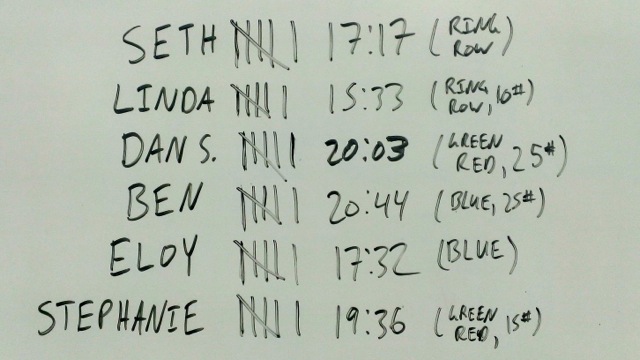 SETH 𝍸 I 17:17 (RING ROW)
LINDA 𝍸 I 15:33 (RING ROW, 10#)
DAN S. 𝍸 I 20:03 (GREEN RED, 25#)
BEN 𝍸 I 20:44 (BLUE, 25#)
ELOY 𝍸 I 17:32 (BLUE)
STEPHANIE 𝍸 I 19:36 (GREEN RED, 15#)